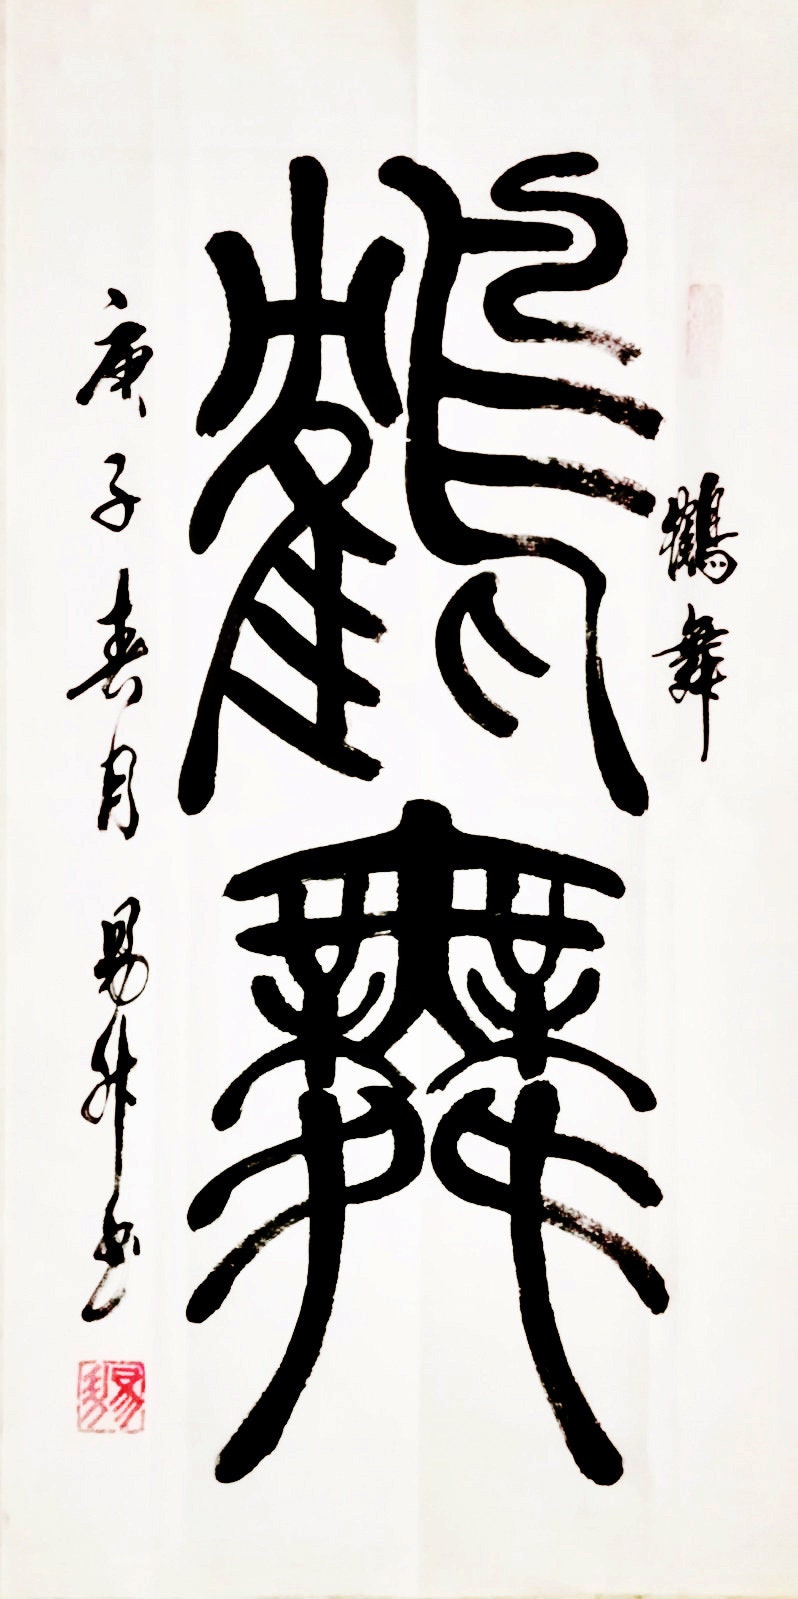 鶴舞
鶴舞
庚子春月易升书